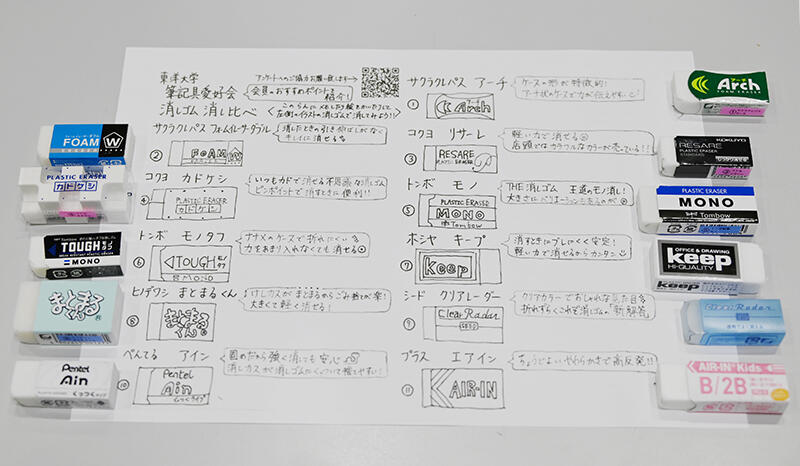 東洋大学
筆記具愛好会
消しゴム 消し比べ
アンケートへのご協力お願い致します→
会員のおすすめポイントも紹介!
サクラクレパス アーチ
①
Arch
ケースの形が特徴的!
アーチ状のケースで力が伝えやすい
サクラクレパス フォームイレーザーダブル
②
FOAM W
消したときの引き
キレイに消せる
コクヨ リサーレ
③
RESARE
軽い力で消せる
店頭ではカラフルなカラーが売っている!!
コクヨ カドケシ
④
PLASTIC ERASER
カドケシ
いつもカドで消せる不思議な消しゴム
ピンポイントで消すときに便利!!
トンボ モノ
⑤
PLASTIC ERASER
MONO
Tombow
THE 消しゴム 王道のモノ消し!
大きさにバリエーションもあるのが
トンボ モノタフ
⑥
TOUGH
MONO
ナナメのケースで折れにくい
力をあまり入れなくても消せる
ホシヤ キープ
⑦
Keep
消すときにブレにくく安定!
軽い力で消せるからカンタン
ヒノデワシ まとまるくん
⑧
まとまるくん
けしカスがまとまるからごみ捨てが楽!
大きくて軽く消せる!
シード クリアレーダー
⑨
Clear Radar
SEED
クリアカラーでおしゃれな見た目
折れずらくこれぞ消しゴムの「新解答」
ぺんてる アイン
⑩
Pentel
Ain
くっつくタイプ
固めだから強く消しても安心
消しカスが消しゴムにくっついて捨てやすい!
プラス エアイン
⑪
AIR-IN
ちょうどよいやわらかさで高反発!!
アーチ
Arch
FOAM ERASER
FOAM W
KOKUYO
RESARE
PLASTIC ERASER
STANDARD
PLASTIC ERASER
カドケシ
PLASTIC ERASER
MONO
Tombow
TOUGH
MONO
OFFICE & DRAWING
Keep
HI-QUALITY
Keep
まとまるくん
Clear Radar
Pentel
Ain
くっつくタイプ
AIR-IN Kids
B/2B